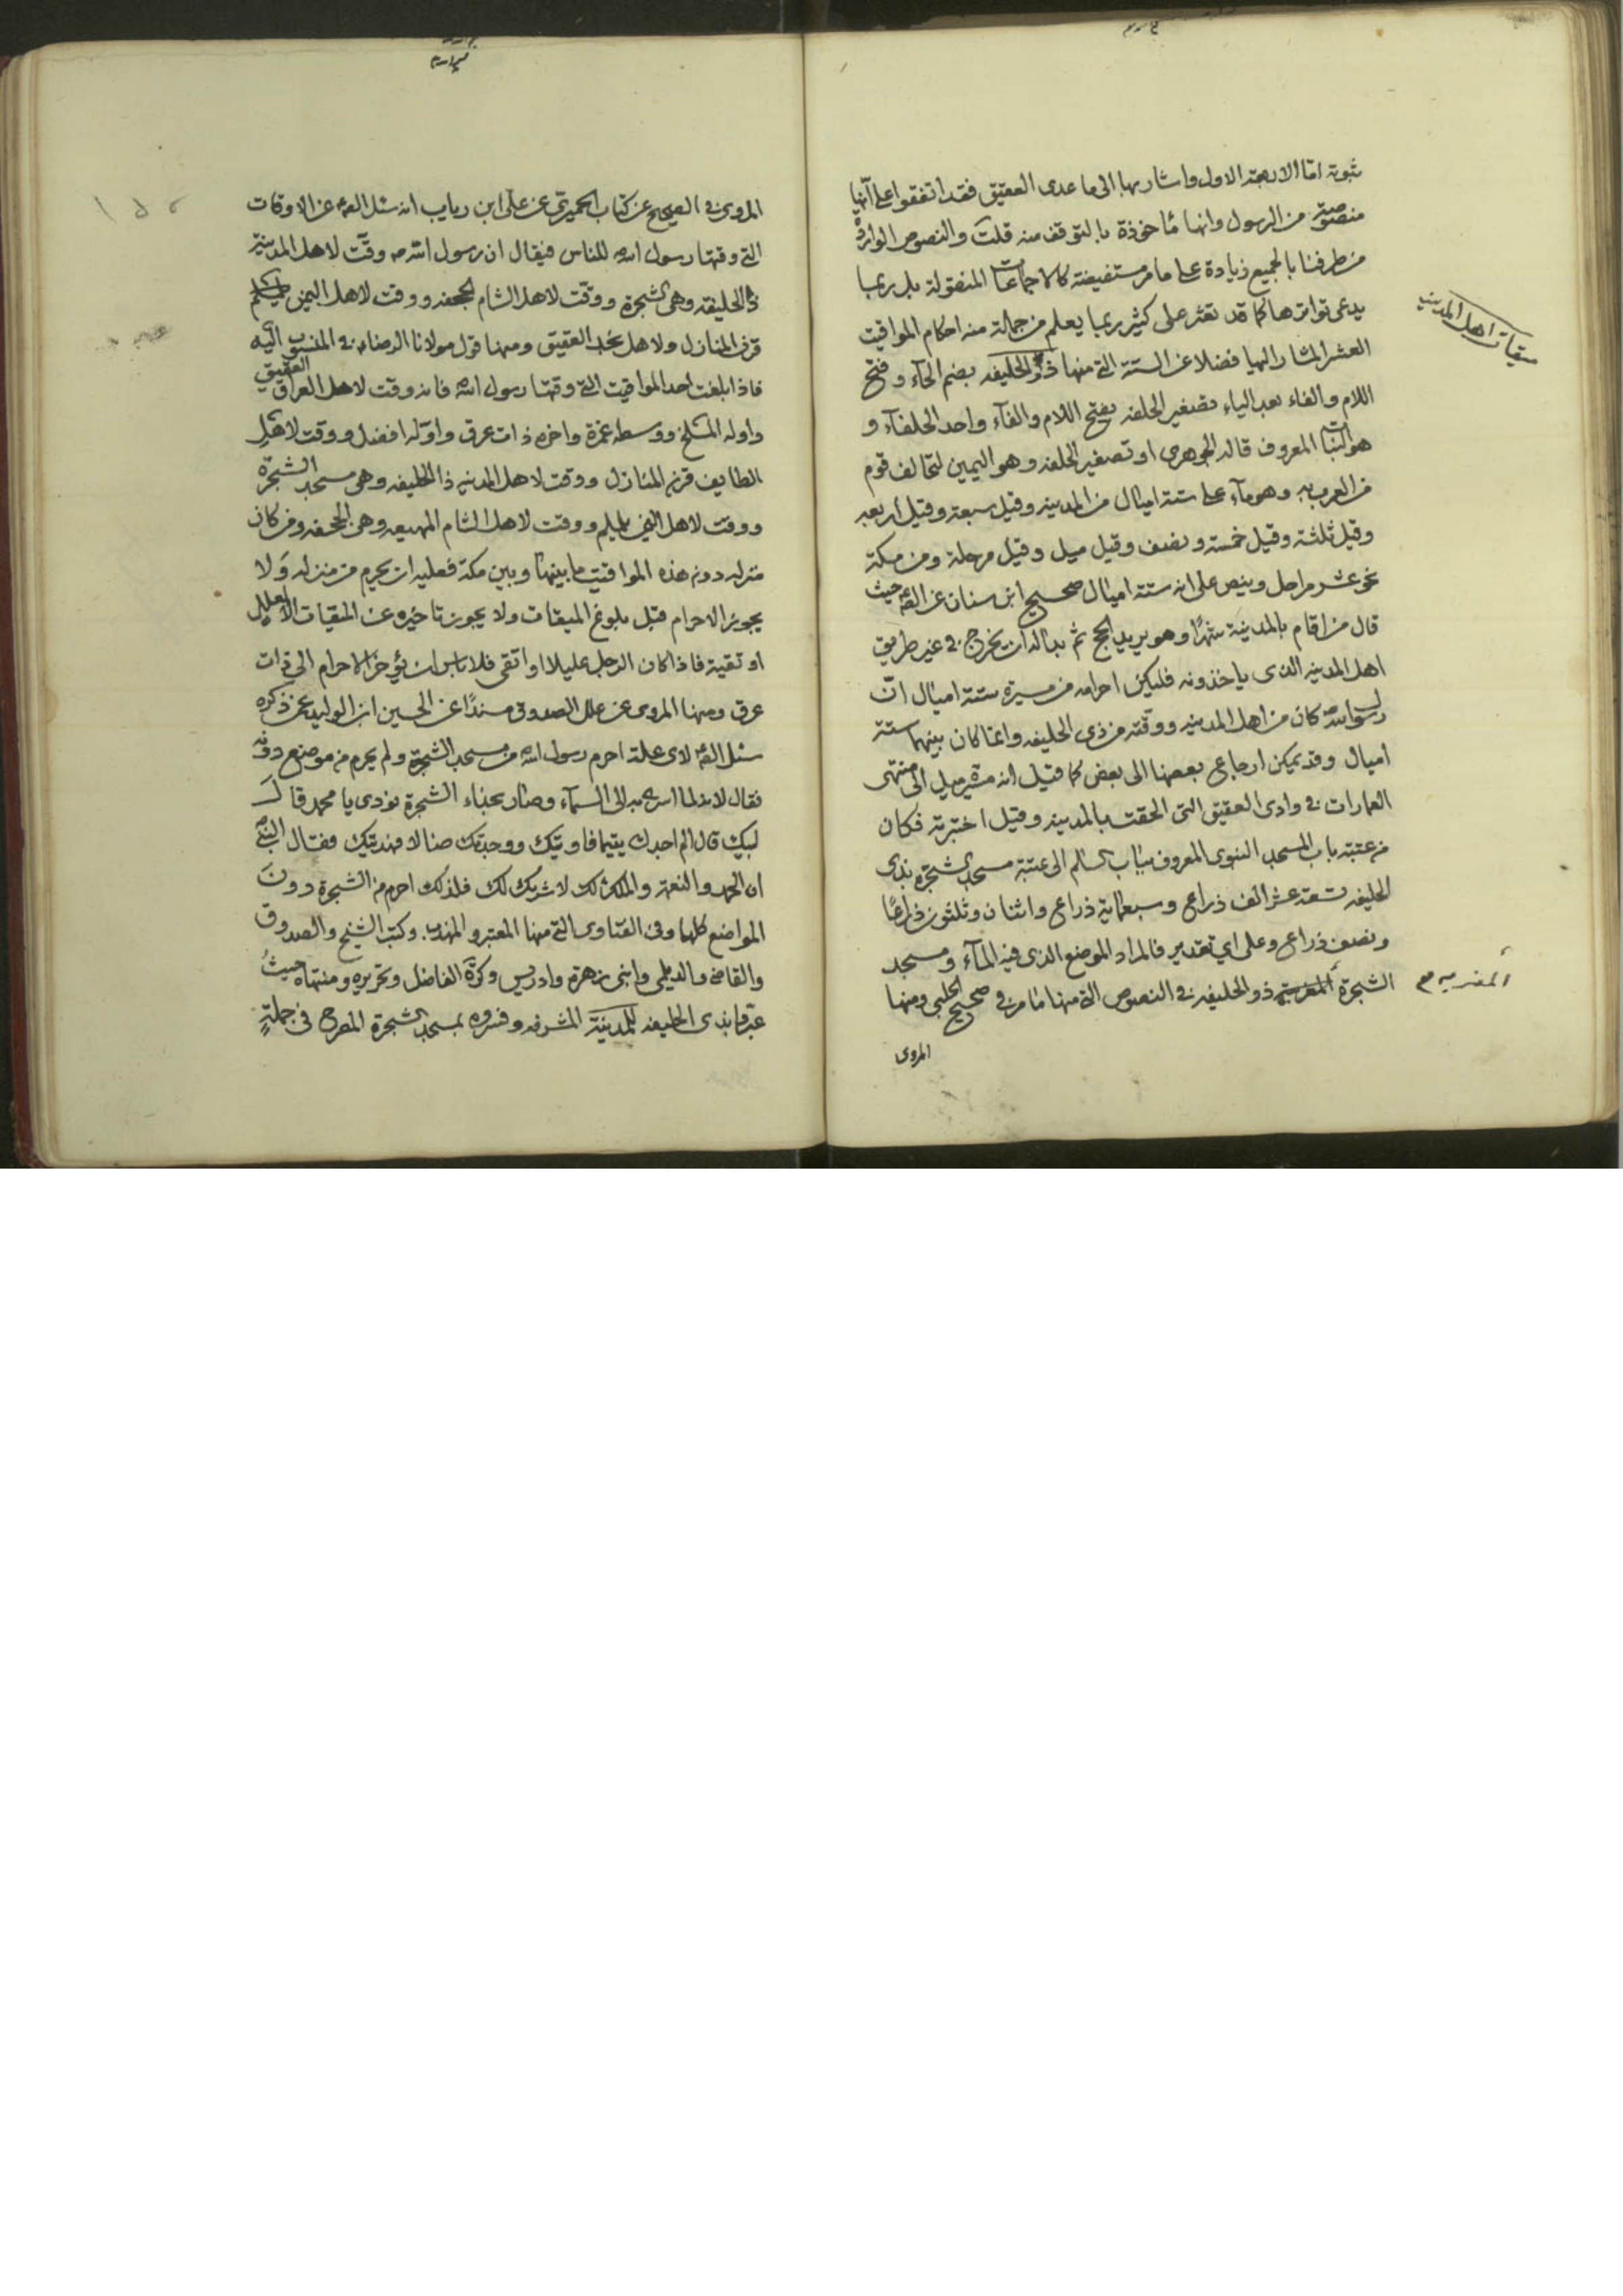 ثبوته اما الاربعة الاول واشار بها الى ما عدى العقيق فقد اتفقوا على انها
منصوصة من الرسول وانها مأخوذة بالتوقف منه قلت والنصوص الواردة
من طرفنا بالجميع زيادة على ما مر مستفيضة كالاجماعات المنقولة بل ربما
يدعى تواترها كما قد تعثر على كثير ربما يعلم من جملة منه احكام المواقيت
العشر المشار اليها فضلا عن الستة التي منها ذو الحليفه بضم الحآء وفتح
اللام والفاء بعد الياء تصغير الحلفه بفتح اللام والفآء واحد الحلفآء و
هو النبات المعروف قاله الجوهرى او تصغير الحلفه وهو اليمين لتحالف قوم
من العرب به وهو مآء على ستة اميال من المدينه وقيل سبعة وقيل اربعه
وقيل ثلثة وقيل خمسة ونصف وقيل ميل وقيل مرحلة ومن مكة
نحو عشر مراحل وينص على انه ستة اميال صحيح ابن سنان عن الصه حيث
قال من اقام بالمدينة شهرًا وهو يريد الحج ثم بدا له ان يخرج في غير طريق
اهل المدينه الذى ياخذونه فليكن احرامه من مسيرة ستة اميال انّ
رسول الله كان من اهل المدينه ووقته من ذى الحليفه وانما كان بينهما ستة
اميال وقد يمكن ارجاع بعضها الى بعض كما قيل انه ميل الى منتهى
العمارات في وادى العقيق التى الحقت بالمدينه وقيل اختبرته فكان
من عتبة باب المسجد النبوى المعروف بباب السلام الى عتبة مسجد الشجرة بذى
الحليفه تسعة عشر الف ذراع وسبعمائة ذراع واثنان وثلثون ذراعًا
ونصف ذراع وعلى اي تقدير فالمراد الموضع الذى فيه المآء ومسجد
الشجرة ذو الحليفه في النصوص التي منها ما مر في صحيح الحلبى ومنها
المروى
ميقات اهل المدينه
المروى في الصحيح عن كتاب الحميرى عن على ابن رياب انه سئل الصه عن الاوقات
التي وقتها رسول الله للناس فيقال ان رسول الله ص وقّت لاهل المدينة
ذا الحليفه وهى الشجرة ووقّت لاهل الشام الجحفه ووقت لاهل اليمن
قرن المنازل ولاهل نجد العقيق ومنها قول مولانا الرضاء في المنسوب اليه
فاذا بلغت احد المواقيت التي وقتها رسول الله فانه وقت لاهل العراق العقيق
واوله المسلخ ووسطه غمرة واخره ذات عرق واوّله افضل ووقت لاهل
الطايف قرن المنازل ووقت لاهل المدينه ذا الحليفه وهى مسجد الشجرة
ووقت لاهل اليمن يلملم ووقت لاهل الشام المهيعه وهى الجحفه ومن كان
منزله دون هذه المواقيت ما بينها وبين مكة فعليه ان يحرم من منزله وَلا
يجوز الاحرام قبل بلوغ الميقات ولا يجوز تاخيره عن الميقات الا لعليل
او تقية فاذا كان الرجل عليلا او اتقى فلا باس ان يؤخر الاحرام الى ذات
عرق ومنها المروى عن علل الصدوق مسندًا عن الحسين ابن الوليد عمن ذكره
سئل الصه لاى علة احرم رسول الله من مسجد الشجرة ولم يحرم من موضع دونه
فقال لانه لما اسرى به الى السمآء وصار بحذاء الشجرة نودى يا محمد قال
لبيك قال الم اجدك يتيما فاويتك ووجدتك ضالا فهديتك فقال النبي
ان الحمد والنعمة والملك لك لا شريك لك فلذلك احرم من الشجرة دون
المواضع كلها وفى الفتاوى التي منها المعتبر والمهذب وكتب الشيخ والصدوق
والقاضي والديلمى وابنى زهرة وادريس وكرة الفاضل وتحريره ومنتهاه حيث
عبر فيها بذى الحليفه للمدينة المشرفه وفسروه بمسجد الشجرة المصرح في جملة